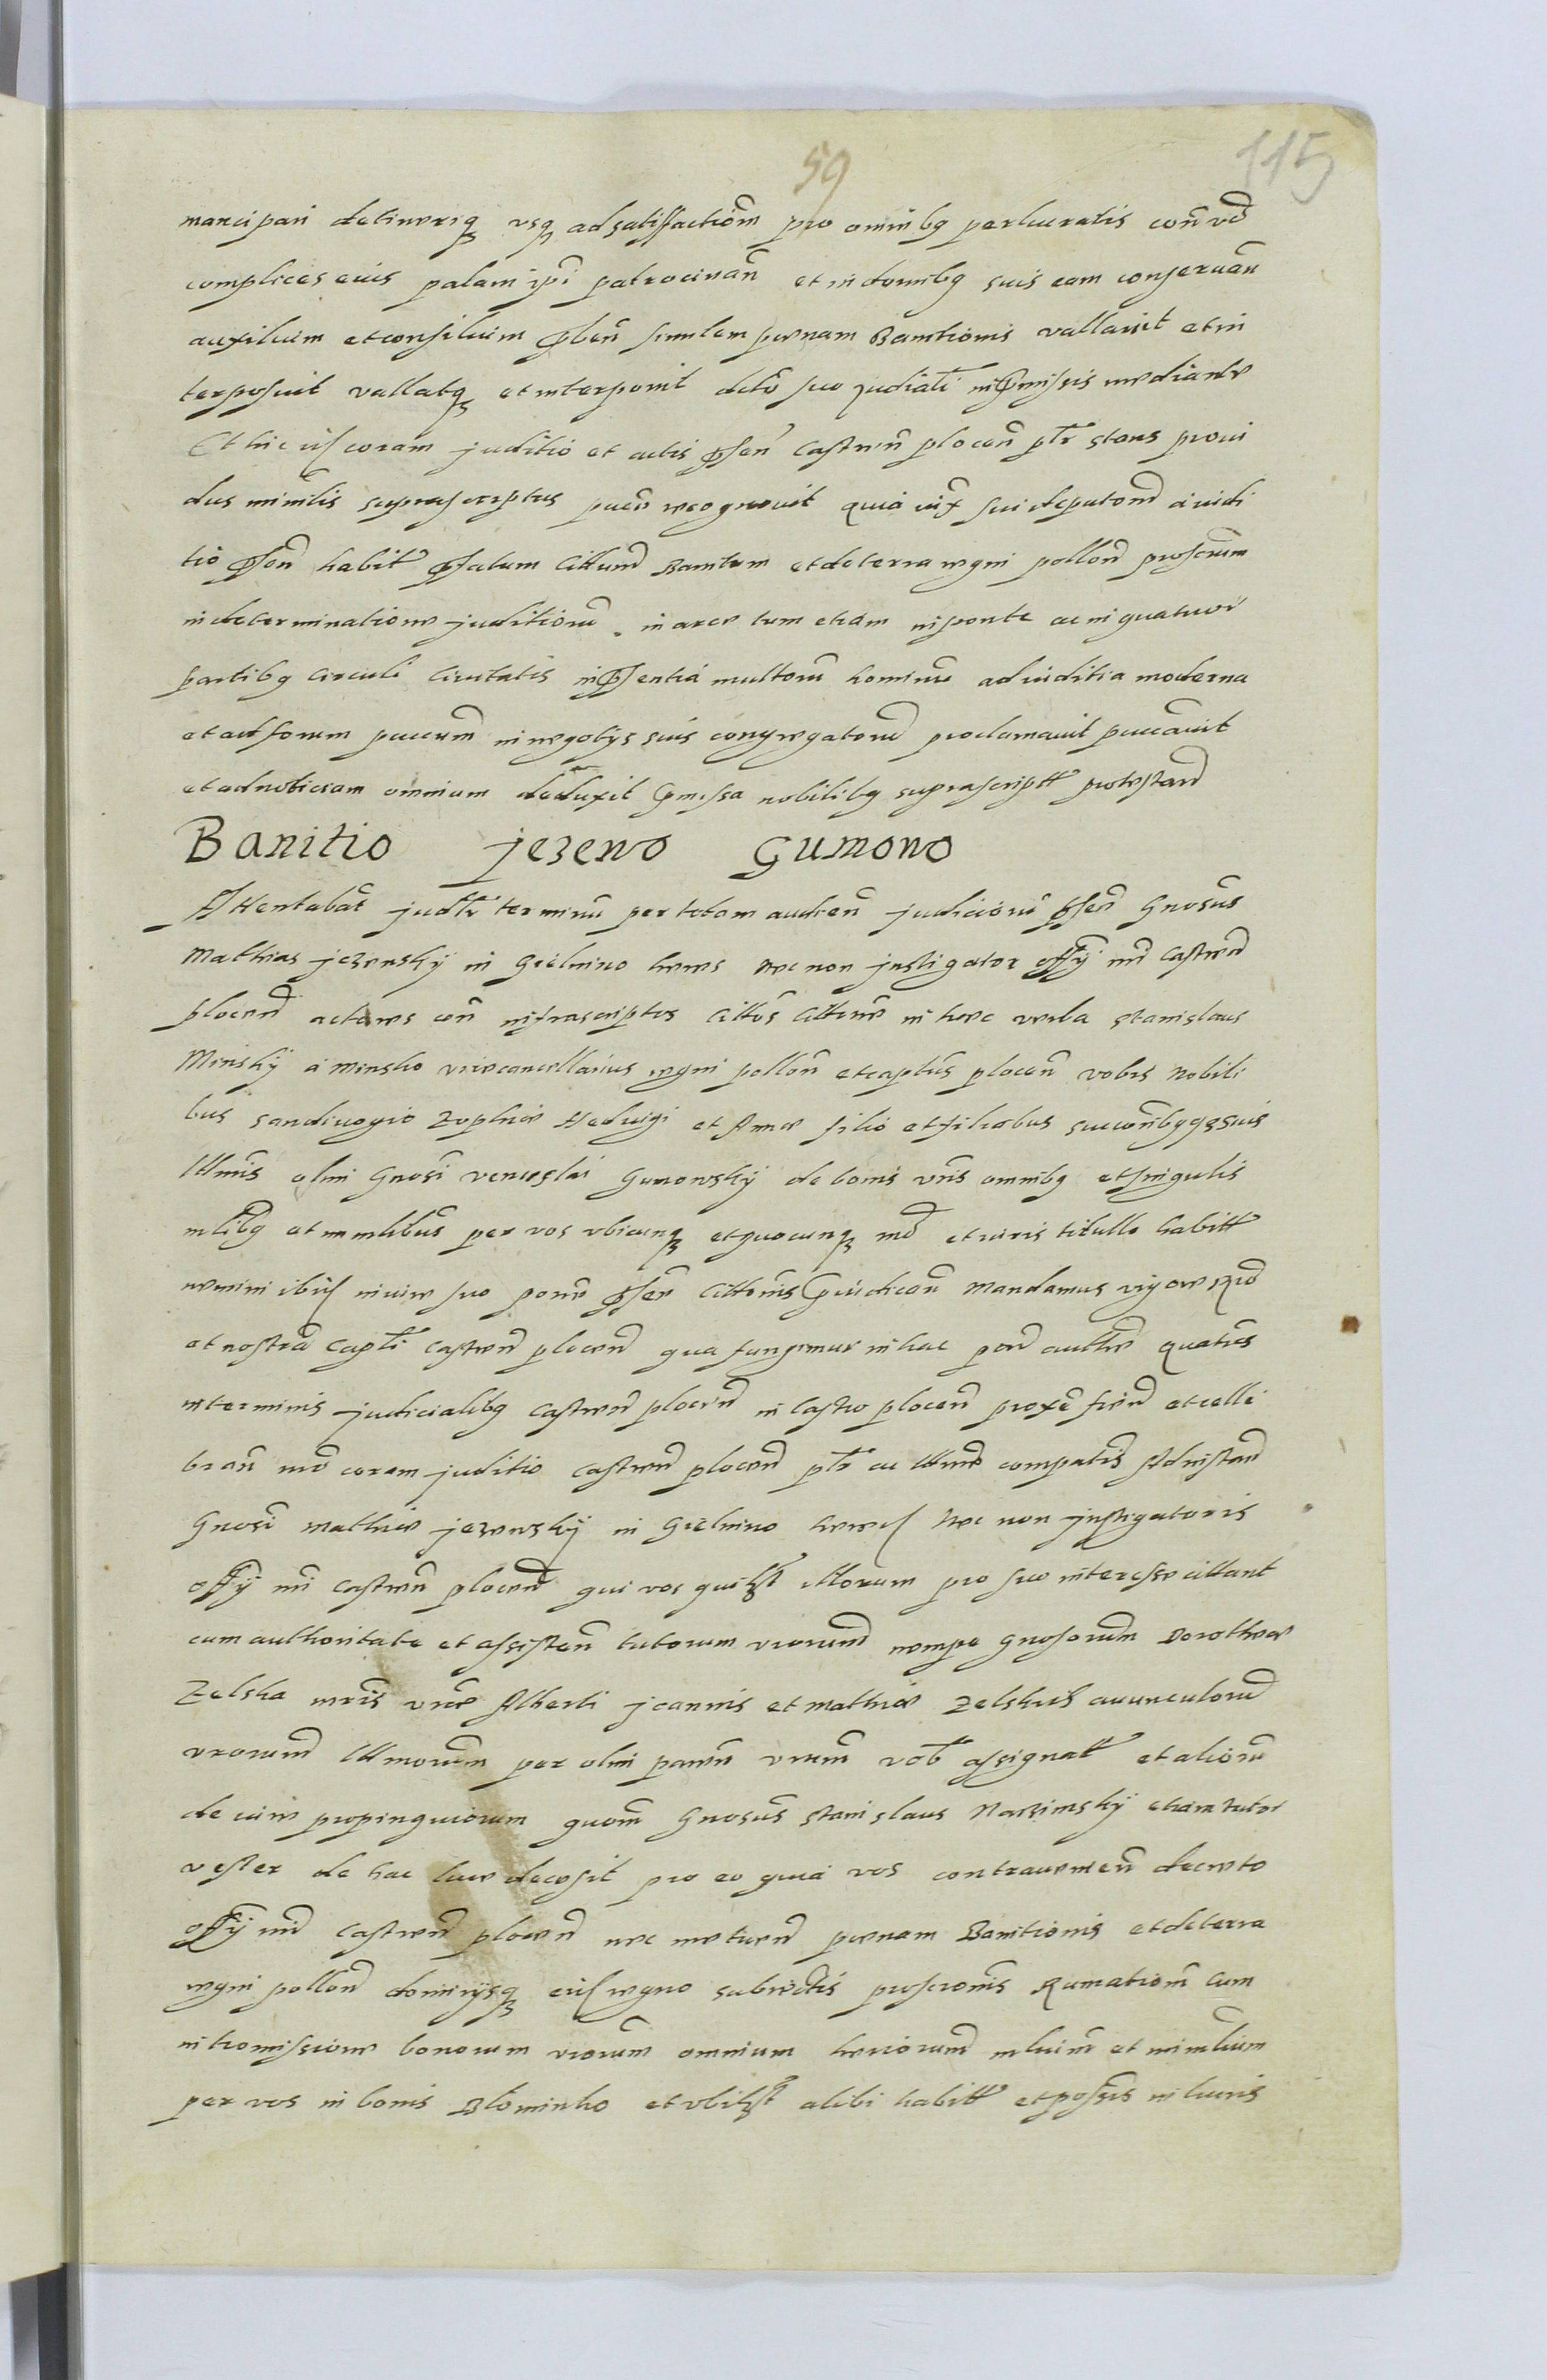 59
115
mancipari detineriq usq ad satisfactiom pro omnibq perlucratis con vo
complices eius palam ipi patrocinan et in domibq suis eam conseruan
auxilium et consilium pben similem poenam Banitionis vallauit et in
terposuit vallatq et interponit dcto suo judiali in pmissis mediante
Et hic iis coram juditio et actis psen Castren plocen ptr stans proui
dus minrlis suprascriptus pucn recognouit quia iux sui deputaom a iudi
tio psen habit pfatum Cittum Banitum et de terra regni pollon proscrum
in determinatione juditioru in arce tum etiam in ponte ac in quatuor
partibq Circuli Ciuitatis in psentia multoru hominu ad iuditia moderna
et ad forum pucum in negotys suis congregatoru proclamauit pucauit
et ad noticiam omnium deduxit pmissa nobilibq suprascriptt protestand
Banitio jezewo Gumowo
Attentabat judtr terminu per totam audien judicioru psen Gnosus
Mathias jezewsky in Gielnino heres nec non jnstigator offy nri Castren
plocen actores con infrascriptos Cittos Cittone in haec verba Stanislaus
Minsky a Minsko vicecancellarius regni pollon et captus plocen vobis Nobili
bus Sandiuogio Zophiae Heduigi et Annae filio et filiabus succoribqqz suis
Ittmis olim Gnosi venceslai Gumowsky de bonis vris omnibq et singulis
mlibq et immlibus per vos vbicunq et quocunq mo et iuris titullo habitt
nemini ibi in iure suo pone psen Cittonis piudican Mandamus vigore
et nostra Capti Castren plocen qua fungimur in hac pte autte quatus
in terminis judicialibq Castren plocen in Castro plocen proxe fien et celle
bran me coram juditio Castren plocen ptr ac ittme compatis Ad instan
Gnosi Mathiae jezewsky in Gielnino hered nec non jnstigatoris
offy nri Castren plocen qui vos quilzt illorum pro suo interesse cittant
cum authoritate et assisten tutorum vrorum nempe Gnosorum Dorotheae
Zelska mris vrae Alberti joannis et Mathiae Zelskich auunculoru
vrorum Ittmorum per olim paren vrum vob assignatt et alioru
de iure propinquiorum quom Gnosus Stanislaus Narzimsky etiam tutor
vester de hac luce decesit pro eo quia vos contrauenien decreto
offy nri Castren plocen nec metuen poenam Banitionis et de terra
regni pollon dominysq eid regno subiectis proscronis Rumationi Cum
intromissione bonorum vrorum omnium haeriorum mlium et immlium
per vos in bonis Blominko et vbilzt alibi habitt et possis in lucris